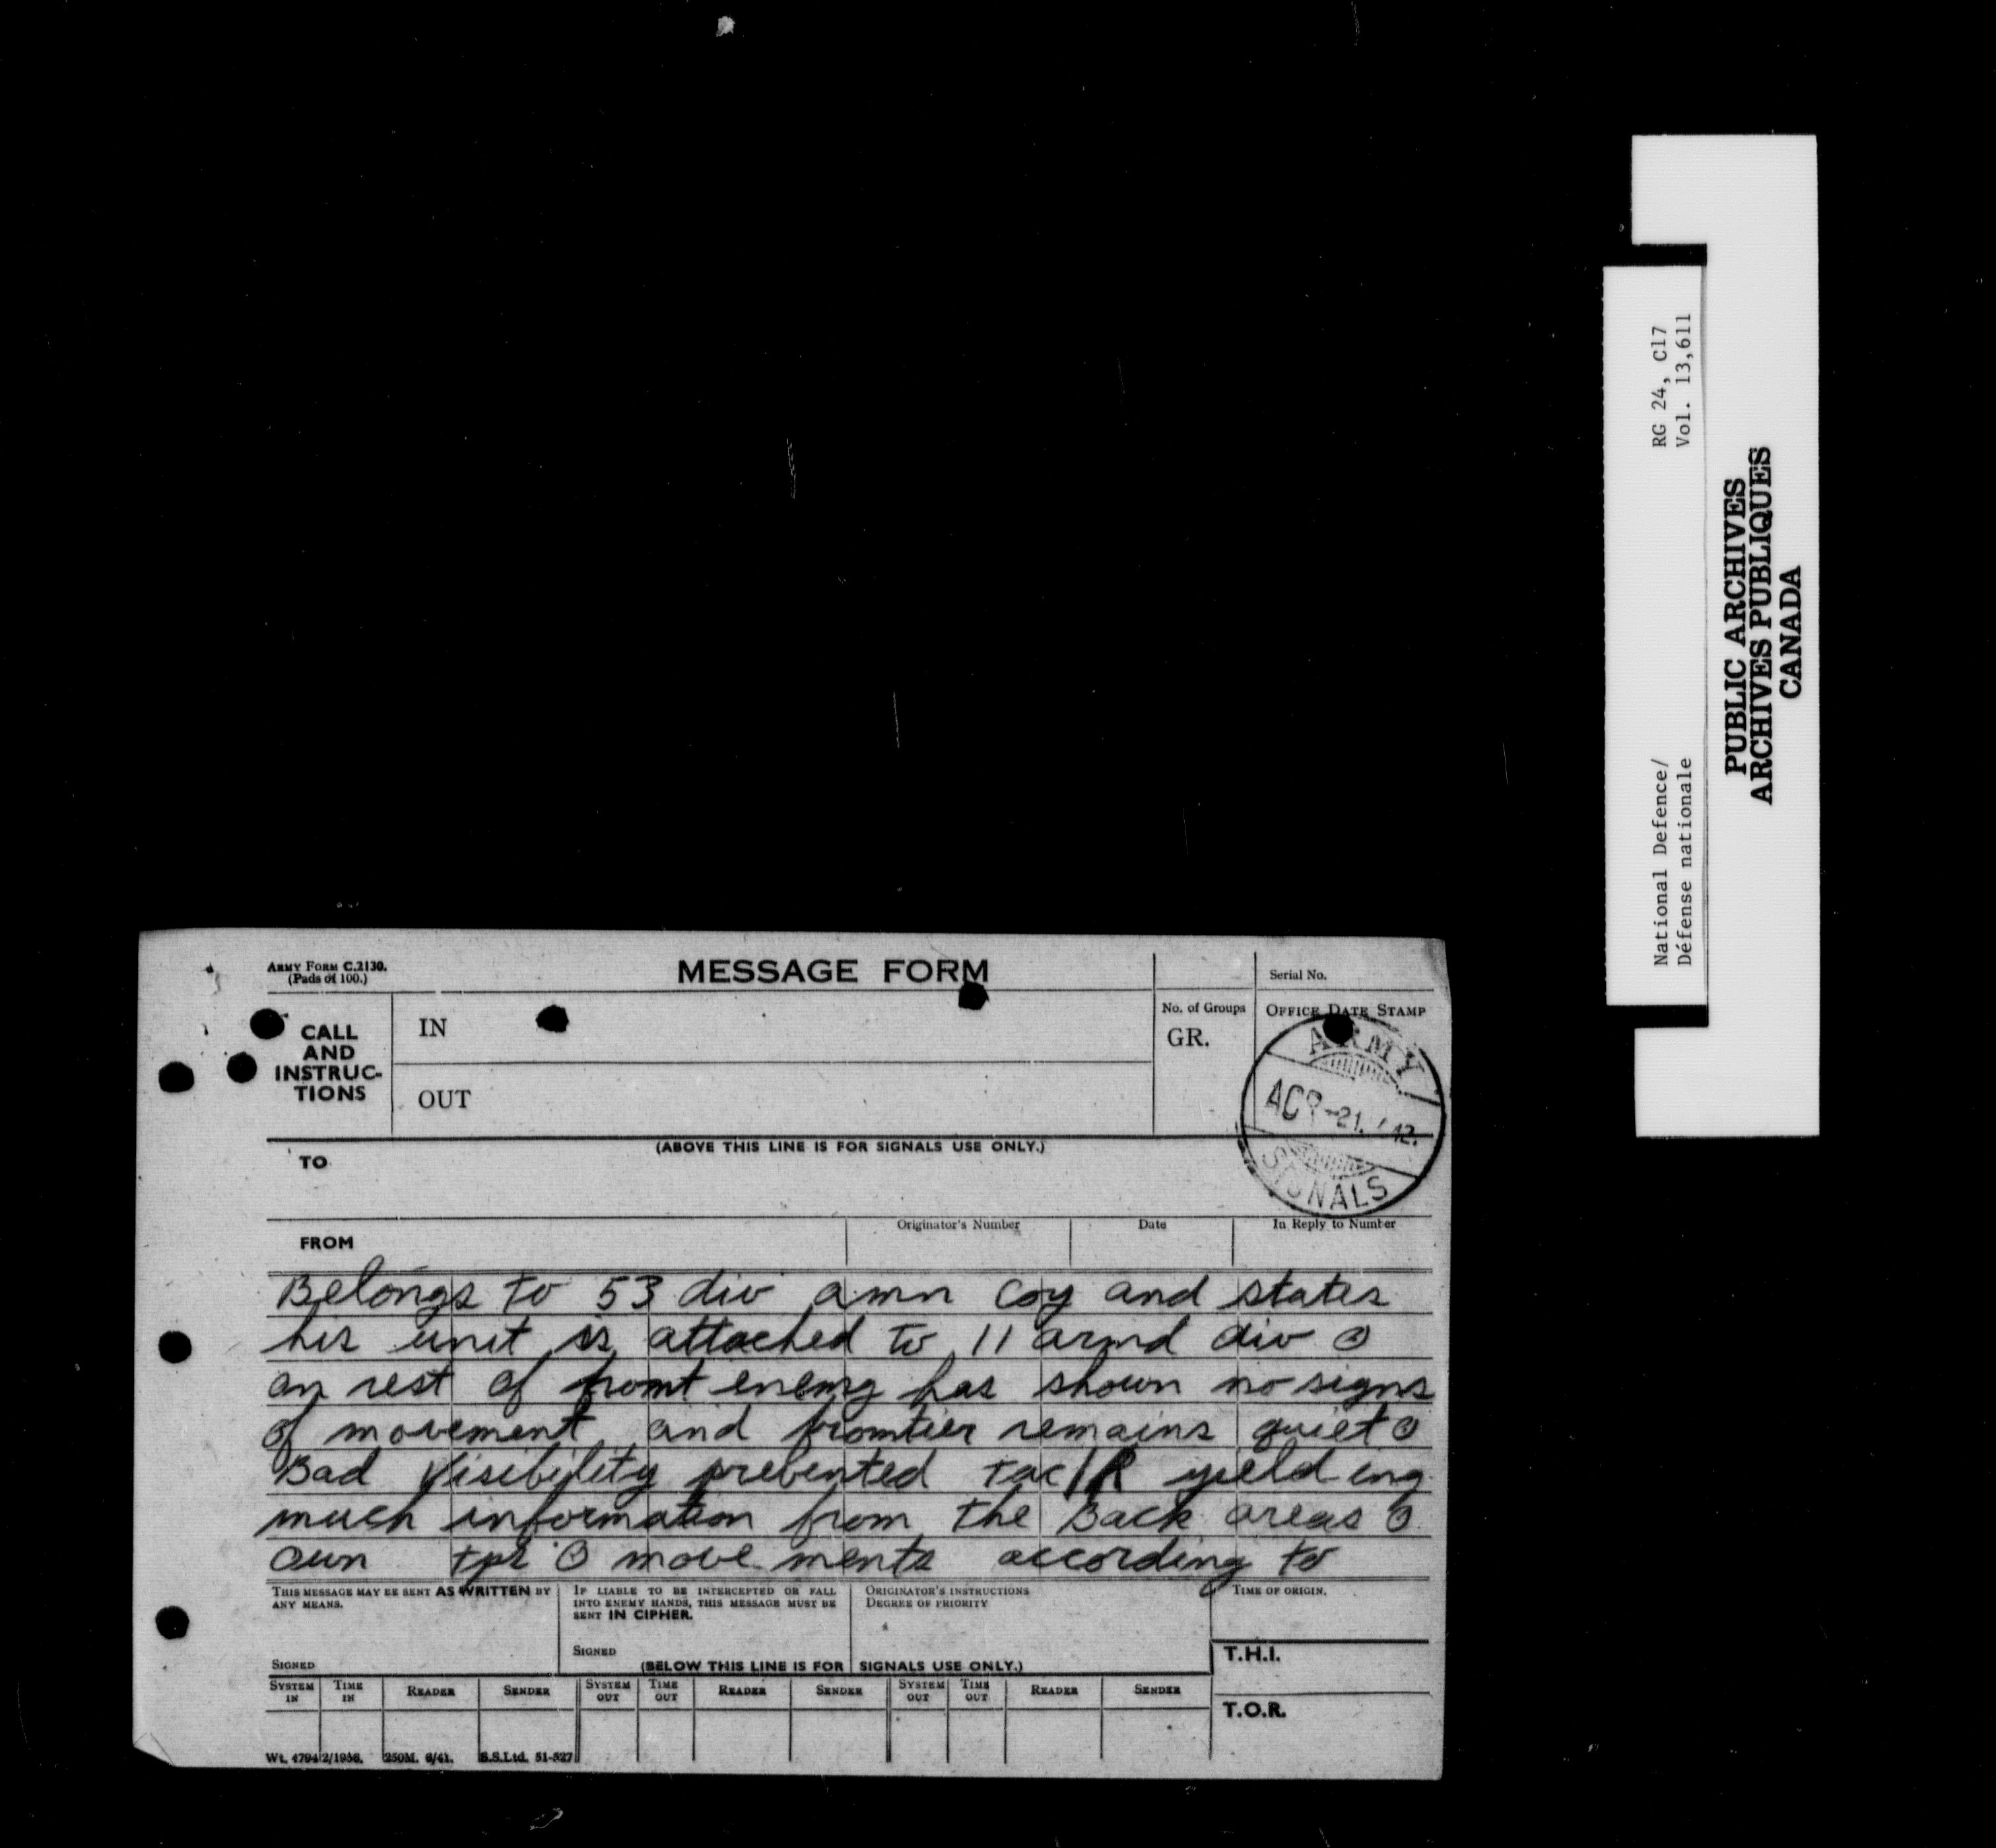 ARMY FORM C.2130.
(Pads of 100.)
MESSAGE FORM
Serial No.
CALL
AND
INSTRUC-
TIONS
IN
OUT
No. of Groups
GR.
OFFICE DATE STAMP
ARMY
21. 42.
SIGNALS
(ABOVE THIS LINE IS FOR SIGNALS USE ONLY.)
TO
FROM
Originator's Number
Date
In Reply to Number
Belongs to 53 div amn coy and states
his unit is attached to 11 armd div ⊙
on rest of front enemy has shown no signs
of movement and frontier remains quiet ⊙
Bad visibility prevented tac/R yielding
much information from the Back areas ⊙
own tps ⊙ movements according to
THIS MESSAGE MAY BE SENT AS WRITTEN BY
ANY MEANS.
SIGNED
IF LIABLE TO BE INTERCEPTED OR FALL
INTO ENEMY HANDS, THIS MESSAGE MUST BE
SENT IN CIPHER.
SIGNED
ORIGINATOR'S INSTRUCTIONS
DEGREE OF PRIORITY
TIME OF ORIGIN.
(BELOW THIS LINE IS FOR SIGNALS USE ONLY.)
T.H.I.
T.O.R.
SYSTEM IN
TIME IN
READER
SENDER
SYSTEM OUT
TIME OUT
READER
SENDER
SYSTEM OUT
TIME OUT
READER
SENDER
Wt. 4794 2/1956. 250M. 6/41. S.S.Ltd. 51-527
National Defence/
Défense nationale
RG 24, C17
Vol. 13,611
PUBLIC ARCHIVES
ARCHIVES PUBLIQUES
CANADA